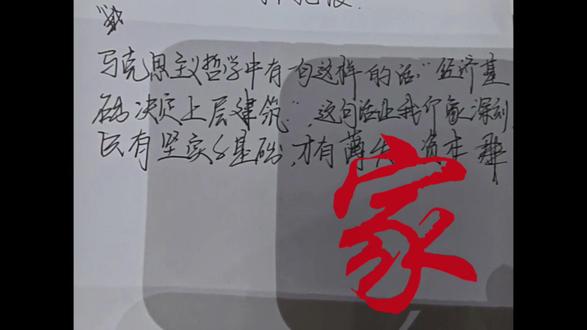 马克思主义哲学中有句这样的话:“经济基
础决定上层建筑”,这句话让我们 深刻
有坚实的基础,才有 资本
家